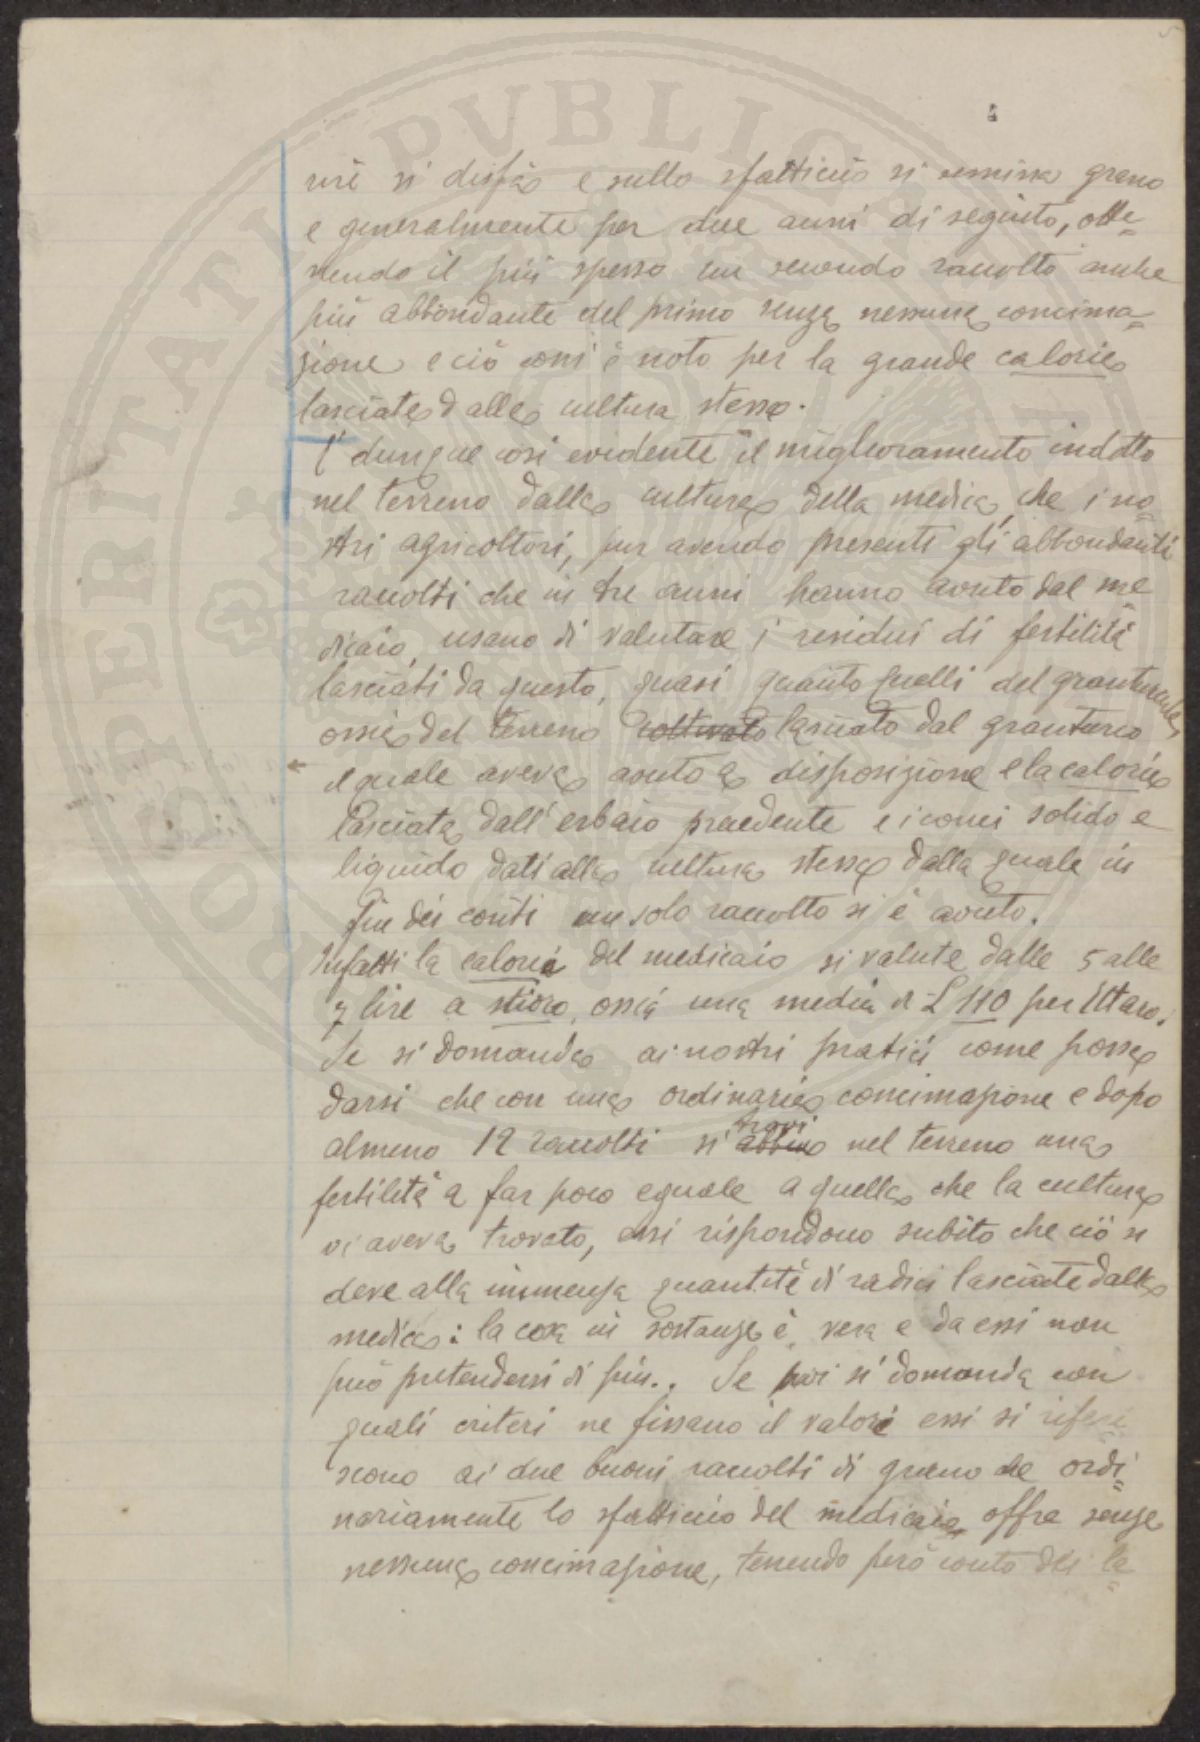 PROSPERITATI PVBLICAE
5
rire si disfà e sullo sfatticcio si semina grano
e generalmente per due anni di seguito, otte=
nendo il più spesso un secondo raccolto anche
più abbondante del primo senza nessuna concima=
zione e ciò com'è noto per la grande caloria
lasciata dalla cultura stessa.
E' dunque così evidente il miglioramento indotto
nel terreno dalla cultura della medica, che i no=
stri agricoltori, pur avendo presenti gli abbondanti
raccolti che in tre anni hanno avuto dal me
dicaio, usano di valutare i residui di fertilità
lasciati da questo, quasi quanto quelli del
ossia del terreno coltivato lasciato dal granturco
il quale aveva avuto a disposizione e la caloria
lasciata dall'erbaio precedente e i conci solido e
liquido dati alla cultura stessa dalla quale in
fin dei conti un solo raccolto si è avuto.
Infatti la caloria del medicaio si valuta dalle 5 alle
7 lire a stioro, ossia una media di £ 110 per Ettaro.
Se si domanda ai nostri pratici come possa
darsi che con una ordinaria concimazione e dopo
almeno 12 raccolti si abbia trovi nel terreno una
fertilità a far poco eguale a quella che la cultura
vi aveva trovato, essi rispondono subito che ciò si
deve alla immensa quantità di radici lasciate dalla
medica: la cosa in sostanza è vera e da essi non
può pretendersi di più.. Se poi si domanda con
quali criteri ne fissano il valore essi si riferi=
scono ai due buoni raccolti di grano che ordi=
nariamente lo sfatticcio del medicaio offre senza
nessuna concimazione, tenendo però conto dei la=